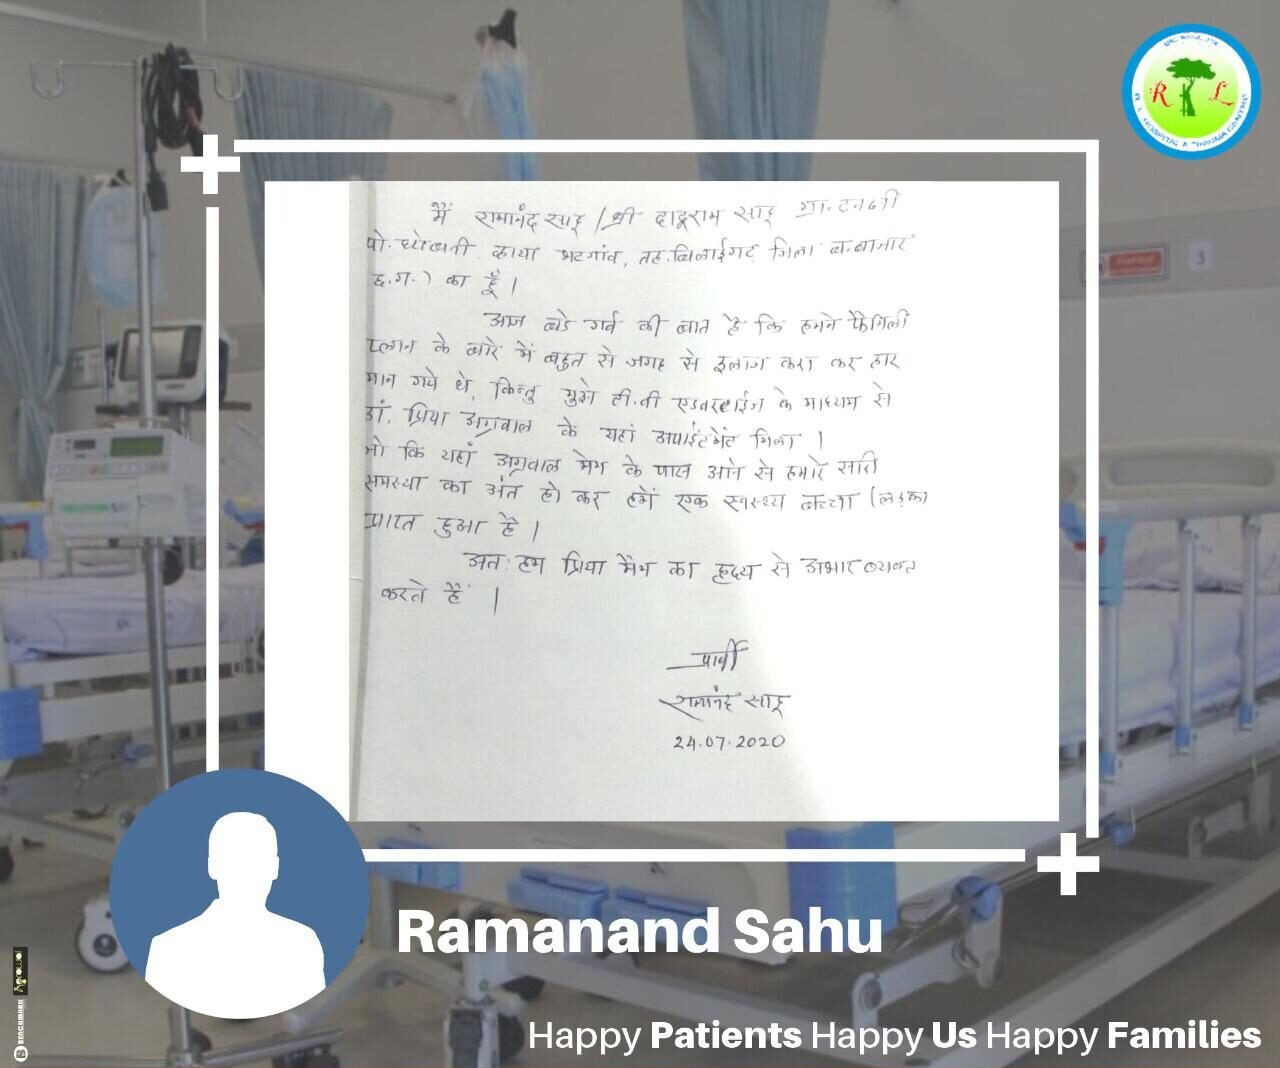 R L
R. L. HOSPITAL & TRAUMA CENTRE
3
मैं रामानंद साहू / श्री दादूराम साहू ग्रा.
पो. व्हाया भटगांव, तह. बिलाईगढ़ जिला ब.बाजार
छ.ग.) का हूँ |
आज बडे गर्व की बात है कि हमने फैमिली
प्लान के बारे में बहुत से जगह से इलाज करा कर हार
मान गये थे, किन्तु मुझे टी.वी एडवरटाईज के माध्यम से
डॉ. प्रिया अग्रवाल के यहां अपाईंटमेंट मिला |
जो कि यहां अग्रवाल मेम के पास आने से हमारे सारी
समस्या का अंत हो कर हमें एक स्वस्थ्य बच्चा (लड़का
प्राप्त हुआ है |
अतः हम प्रिया मैम का हृदय से अभार व्यक्त
करते हैं |
प्रार्थी
रामानंद साहू
24.07.2020
Ramanand Sahu
Happy Patients Happy Us Happy Families
BENCHMARK